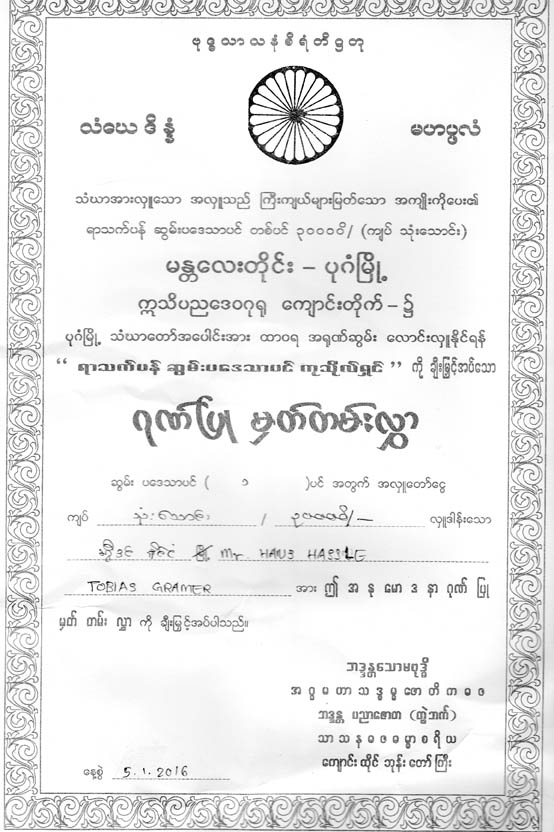 ဗုဒ္ဓသာသနံစိရံတိဋ္ဌတု
သံဃေ ဒိန္နံ မဟပ္ဖလံ
သံဃာအားလှူသော အလှူသည် ကြီးကျယ်များမြတ်သော အကျိုးကိုပေး၏
ရာသက်ပန် ဆွမ်းပဒေသာပင် တစ်ပင် ၃၀၀၀၀ိ/ (ကျပ် သုံးသောင်း)
မန္တလေးတိုင်း – ပုဂံမြို့
ဣသိပညဒေဝဂုရု ကျောင်းတိုက် – ၌
ပုဂံမြို့ သံဃာတော်အပေါင်းအား ထာဝရ အရုဏ်ဆွမ်း လောင်းလှူနိုင်ရန်
“ ရာသက်ပန် ဆွမ်းပဒေသာပင် ကုသိုလ်ရှင် ” ကို ချီးမြှင့်အပ်သော
ဂုဏ်ပြု မှတ်တမ်းလွှာ
ဆွမ်း ပဒေသာပင် ( ၁ )ပင် အတွက် အလှူတော်ငွေ
ကျပ် သုံးသောင်း / ၃၀၀၀၀ိ/– လှူဒါန်းသော
မြို့ Mr. HANS HASSLE
TOBIAS GRAMER အား ဤ အ နု မော ဒ နာ ဂုဏ် ပြု
မှတ် တမ်း လွှာ ကို ချီးမြှင့်အပ်ပါသည်။
ဘဒ္ဒန္တသောမဗုဒ္ဓိ
အ ဂ္ဂ မ ဟာ သ ဒ္ဓ မ္မ ဇော တိ က ဓ ဇ
ဘဒ္ဒန္တ ပညာဇောတ (တွဲဘက်)
သာ သ န ဓ ဇ ဓ မ္မာ စ ရိ ယ
ကျောင်း ထိုင် ဘုန်း တော် ကြီး
နေ့စွဲ 5.1.2016